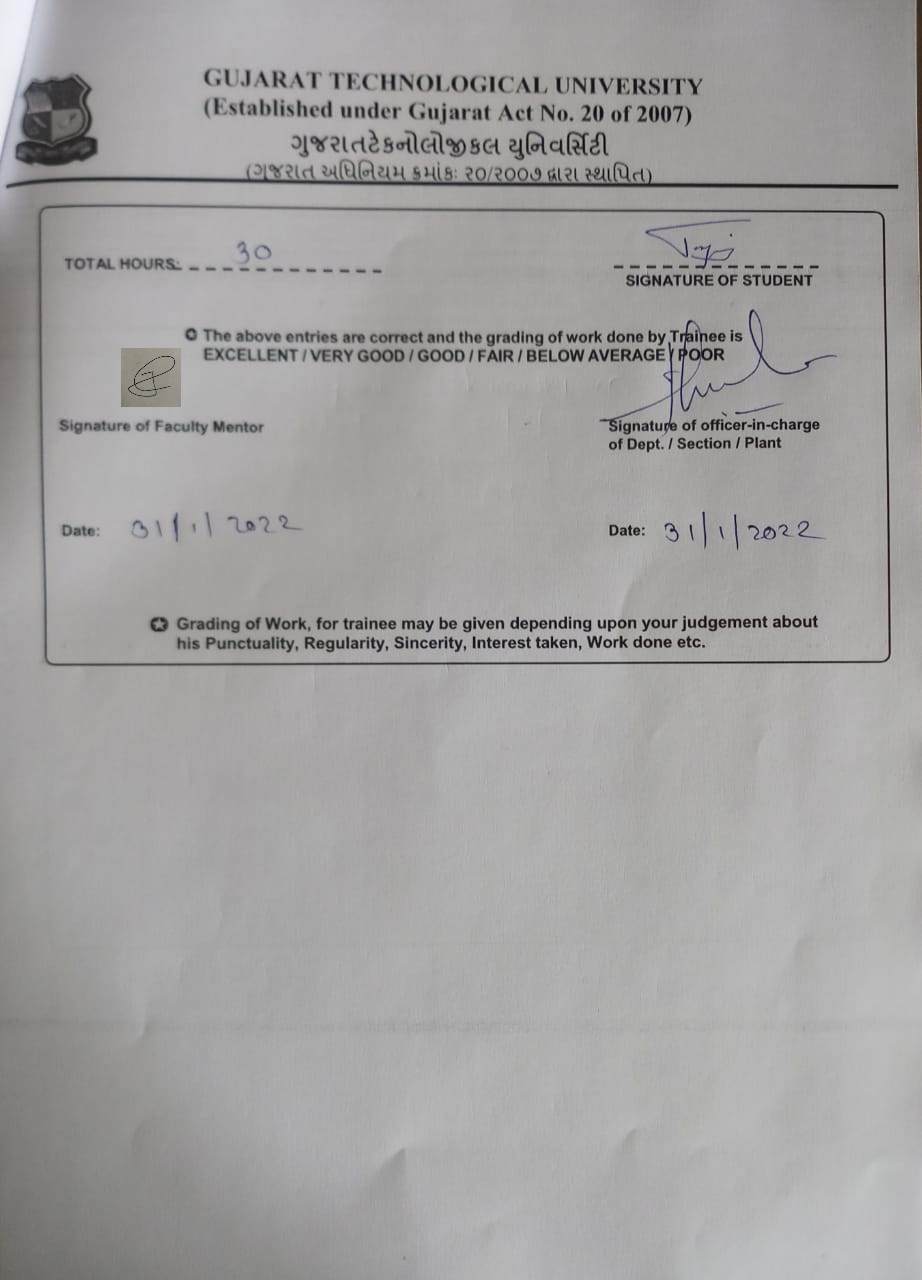 GUJARAT TECHNOLOGICAL UNIVERSITY
(Established under Gujarat Act No. 20 of 2007)
ગુજરાતટેકનોલોજીકલ યુનિવર્સિટી
(ગુજરાત અધિનિયમ ક્રમાંકઃ ૨૦/૨૦૦૭ દ્વારા સ્થાપિત)
TOTAL HOURS: 30
SIGNATURE OF STUDENT
The above entries are correct and the grading of work done by Trainee is
EXCELLENT / VERY GOOD / GOOD / FAIR / BELOW AVERAGE / POOR
Signature of Faculty Mentor
Signature of officer-in-charge
of Dept. / Section / Plant
Date: 31/1/2022
Date: 31/1/2022
Grading of Work, for trainee may be given depending upon your judgement about
his Punctuality, Regularity, Sincerity, Interest taken, Work done etc.